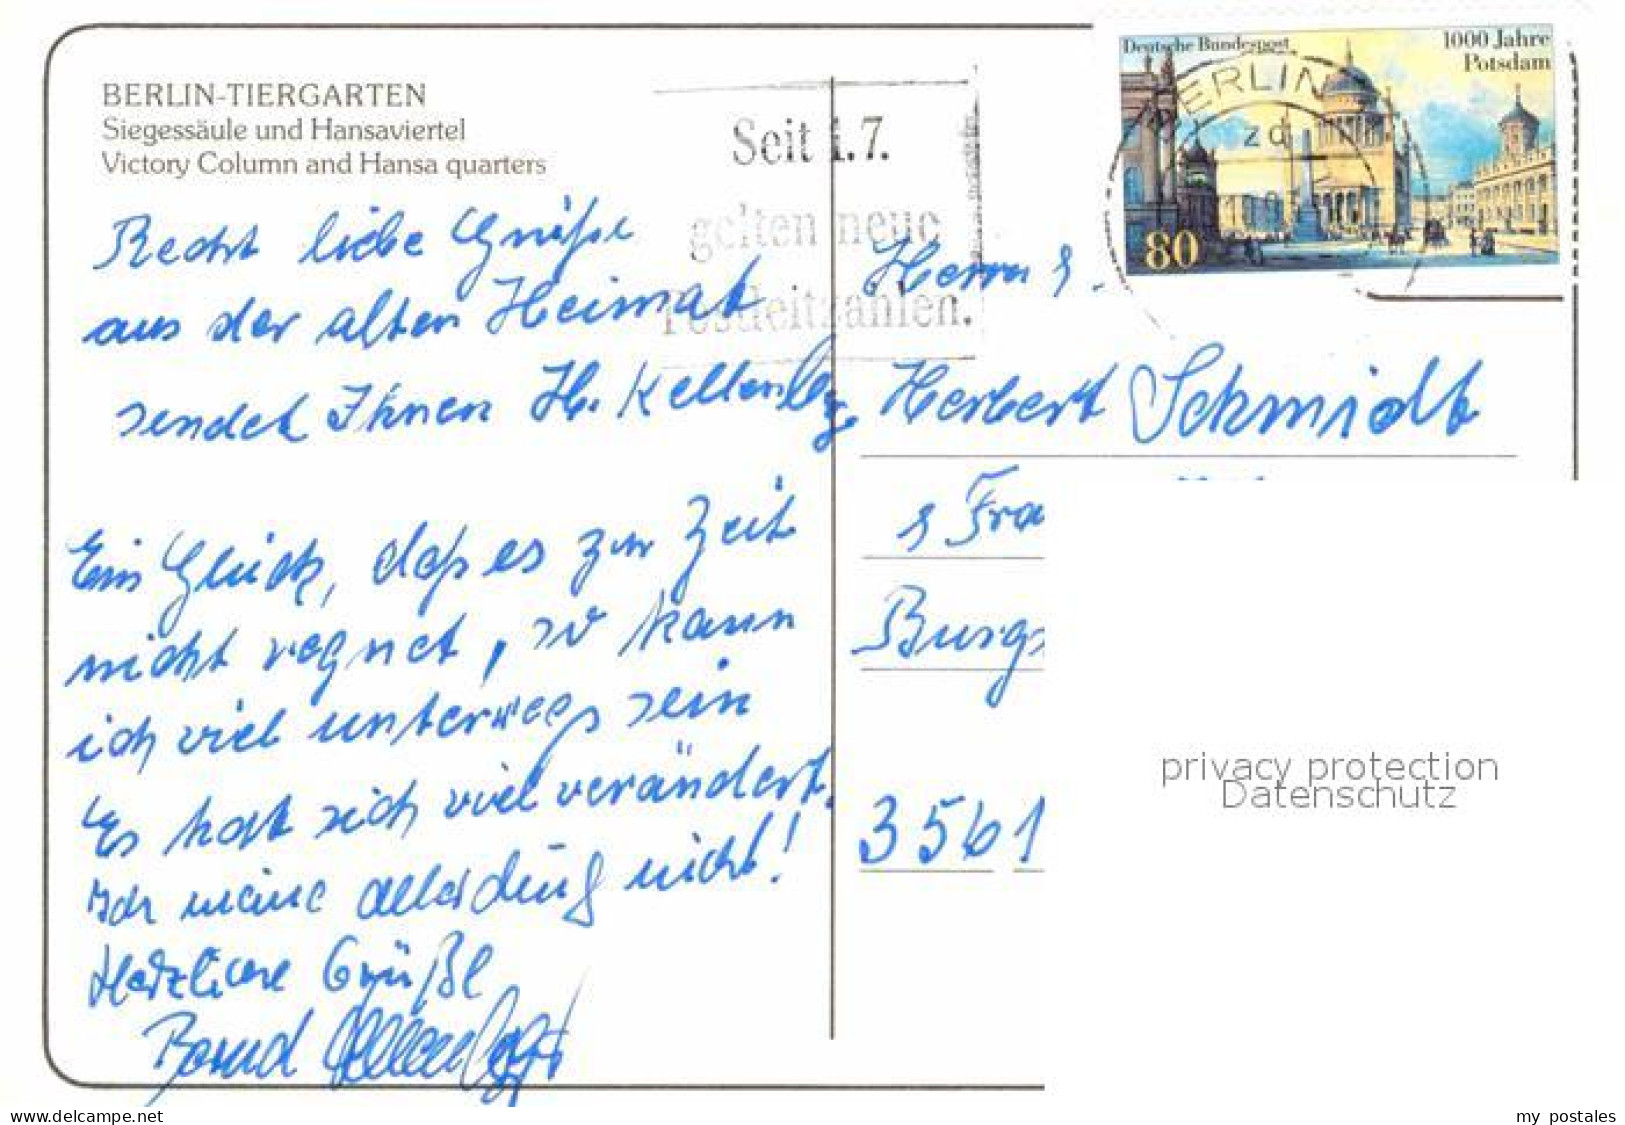 BERLIN-TIERGARTEN
Siegessäule und Hansaviertel
Victory Column and Hansa quarters
Recht liebe Grüße
aus der alten Heimat
sendet Ihnen H. Kellenbg.
Ein Glück, daß es zur Zeit
nicht regnet, so kann
ich viel unterwegs sein
Es hat sich viel verändert.
Ich meine allerdings nicht!
Herzliche Grüße
Bernd
Seit 1.7.
gelten neue
Postleitzahlen.
Deutsche Bundespost
1000 Jahre
Potsdam
80
BERLIN
zd
Herrn
Herbert Schmidt
Fra
Burgs
3561
privacy protection
Datenschutz
www.delcampe.net
my_postales